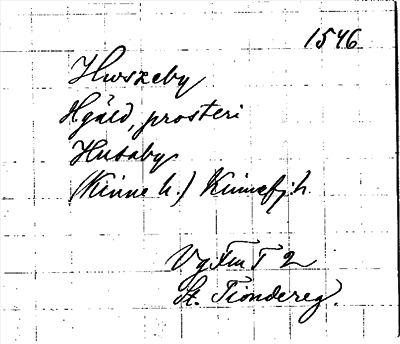 1546
Hwszeby
Hgäld, prosteri
Husaby
(Kinne h.) Kinnefj. h.
Vg Fm T 2
St. Tiondereg.